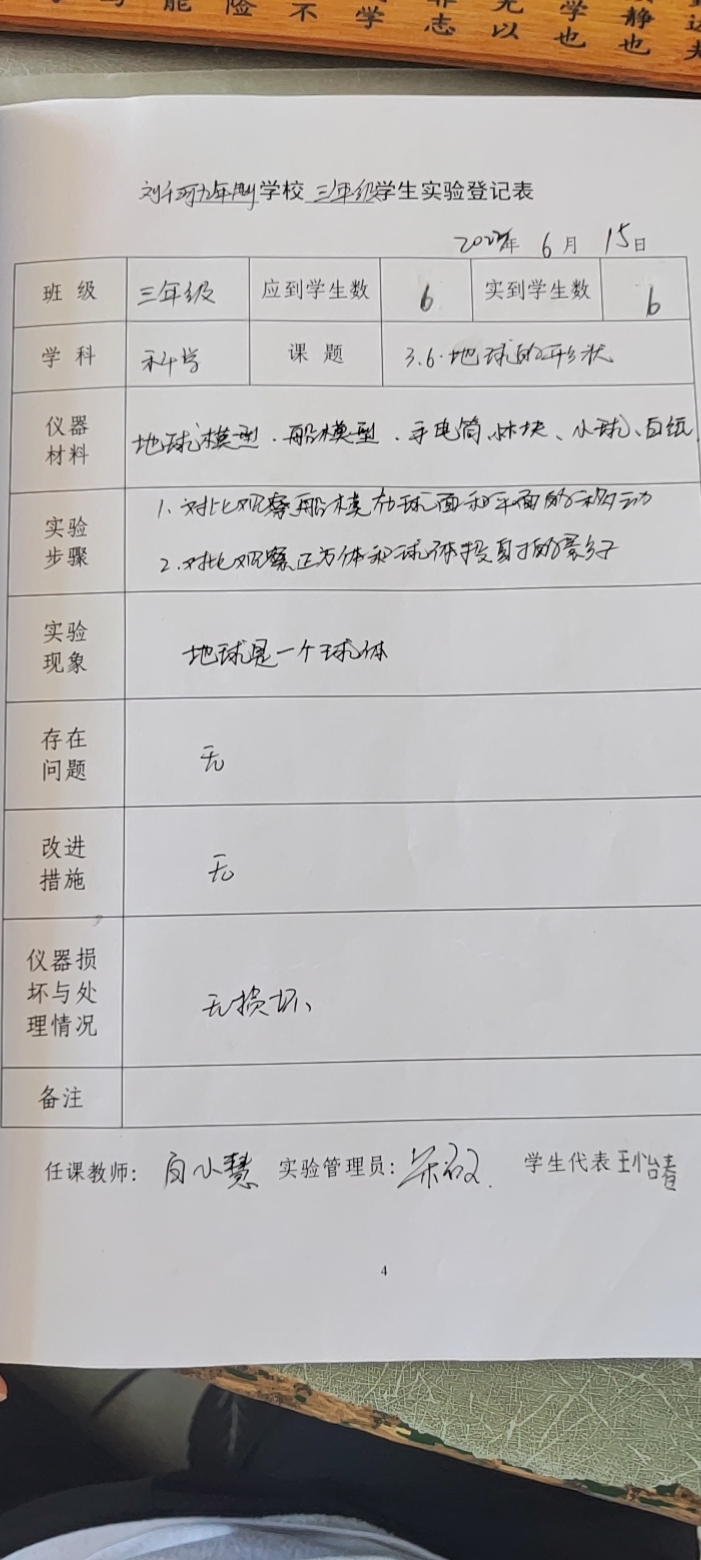 能 险 不 学 志 以 也 静 也
刘千河九年制学校 三年级学生实验登记表
年 6 月 15 日
班 级 三年级 应到学生数 6 实到学生数 6
学 科 科学 课 题 3.6.地球的形状
仪器 材料 地球模型、船模型、手电筒、木块、小球、白纸
实验 步骤 1. 对比观察船模在球面和平面的移动
2.对比观察正方体和球体投射的影子
实验 现象 地球是一个球体
存在 问题 无
改进 措施 无
仪器损 坏与处 理情况 无损坏
备注
任课教师: 白小慧 实验管理员: 学生代表 王怡春
4